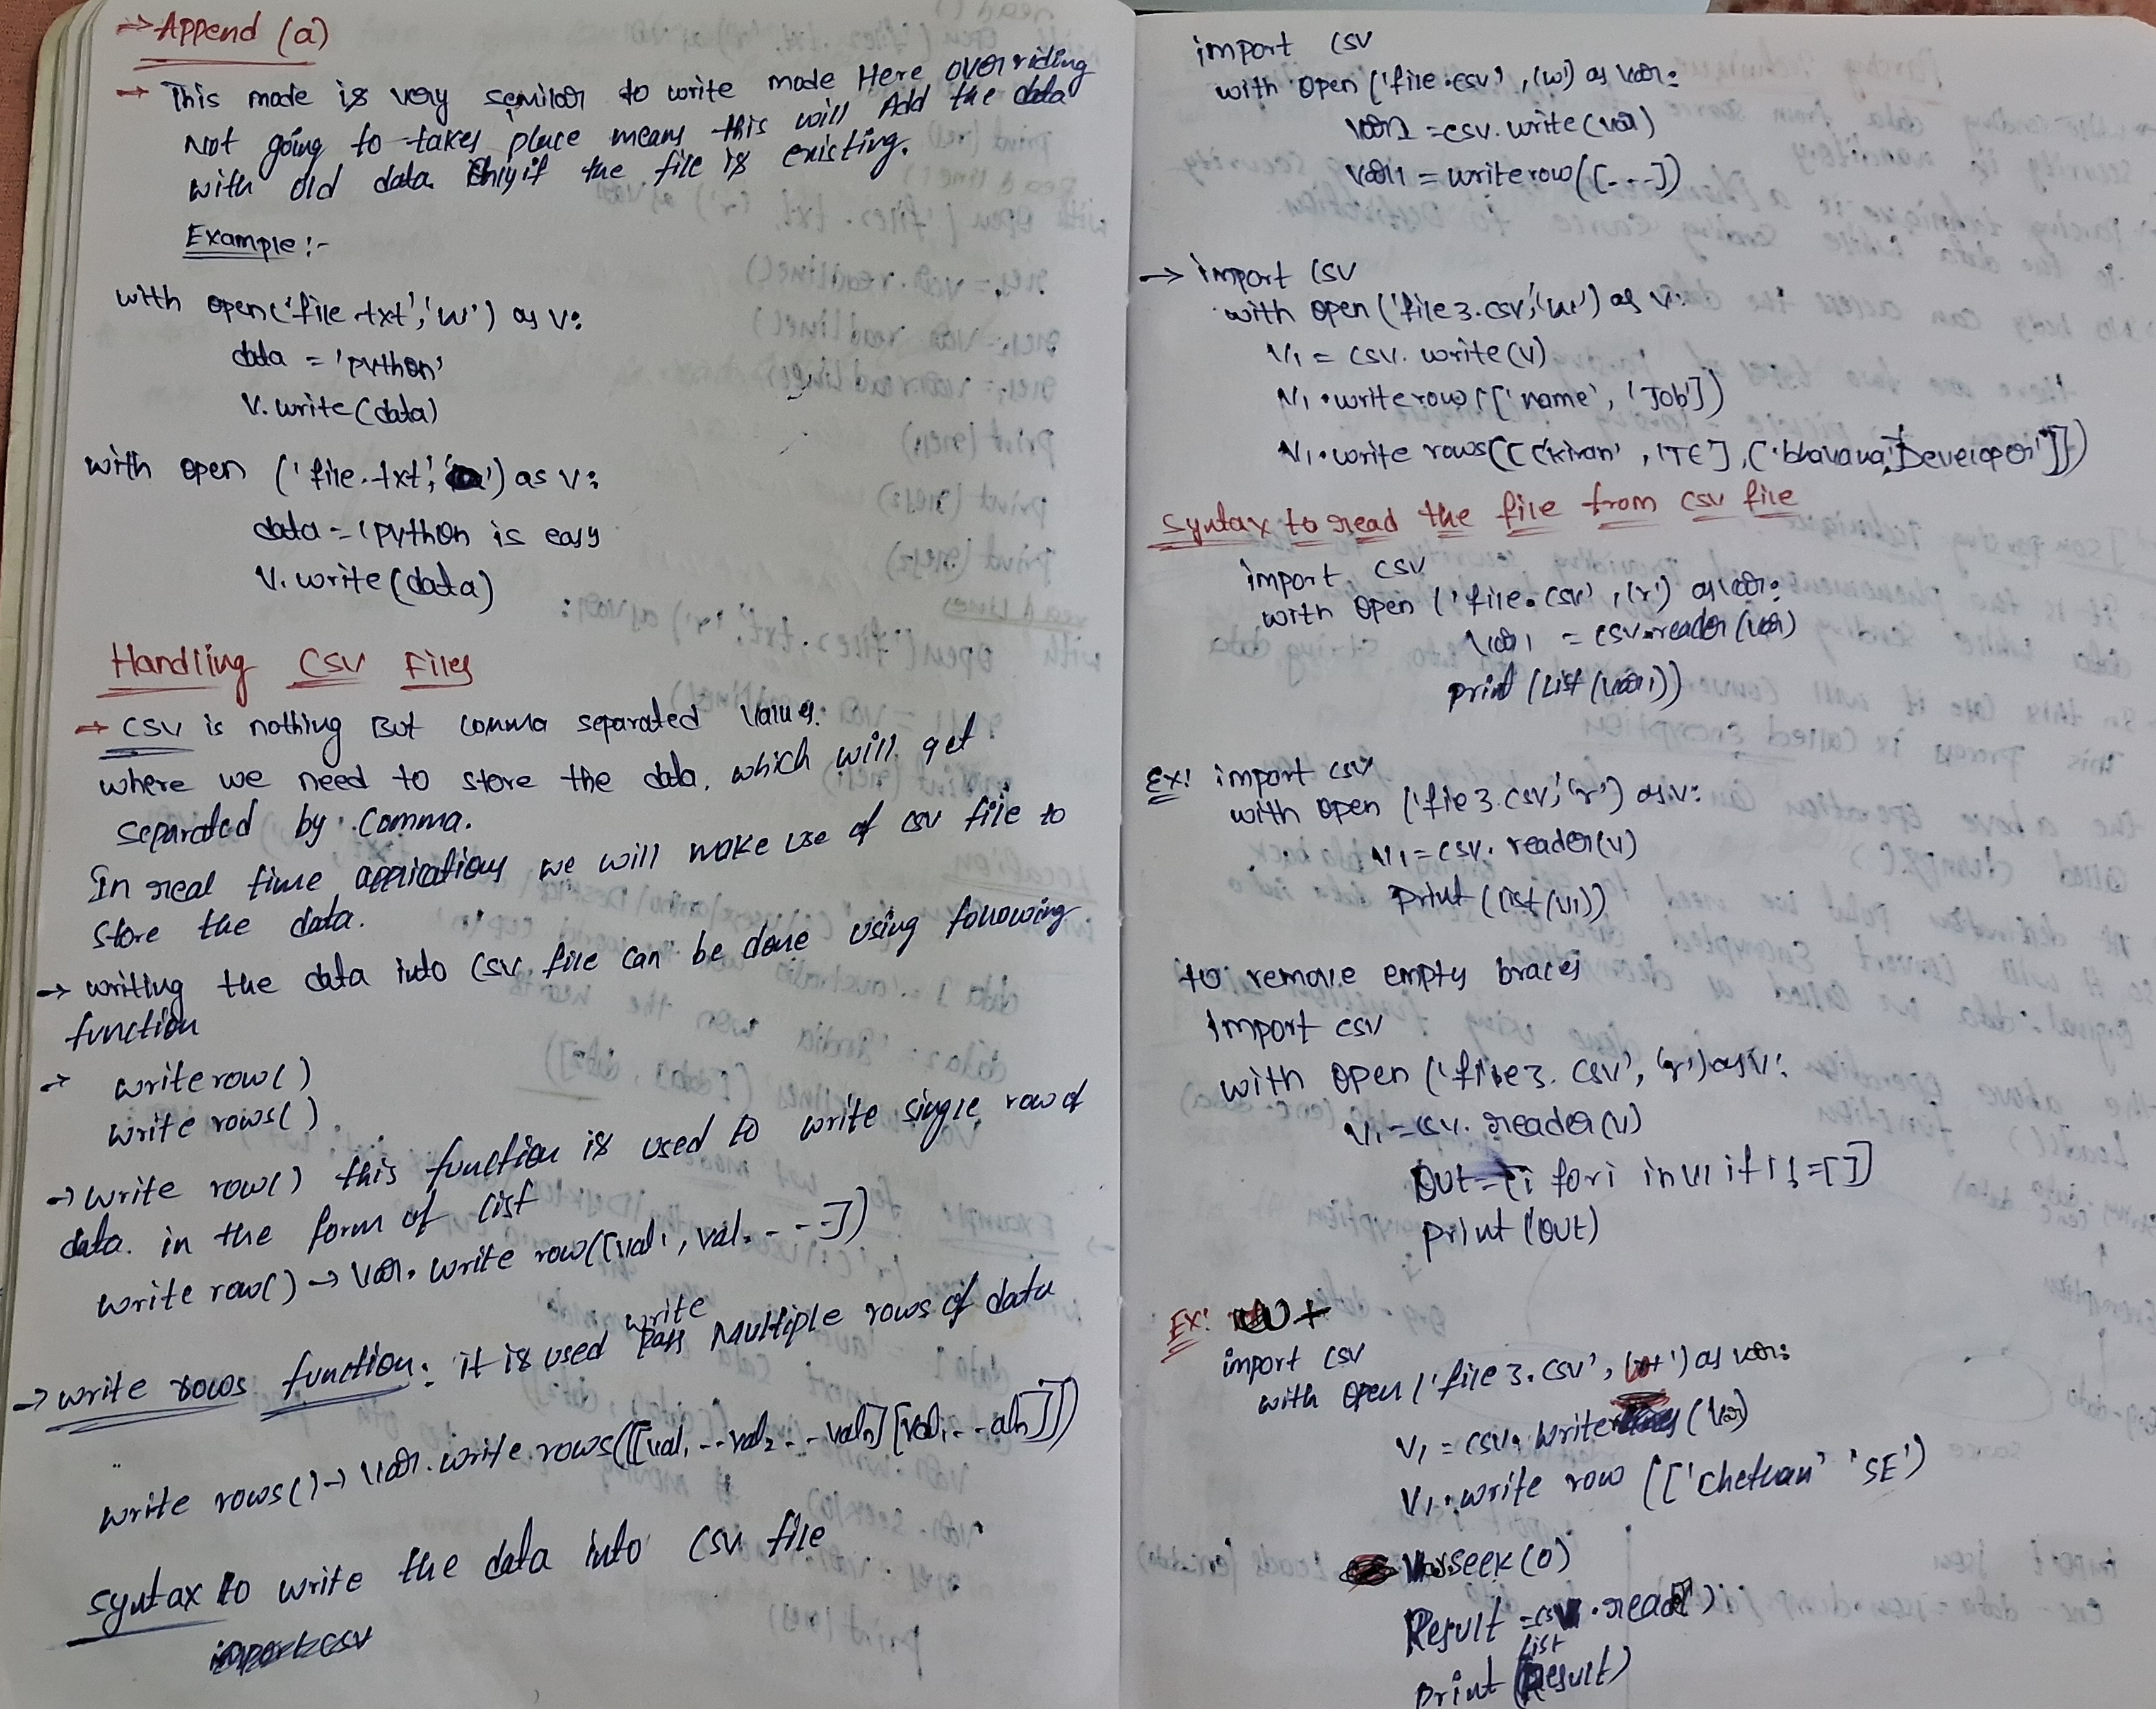 → Append (a)
→ This mode is very semilar to write mode Here overriding
Not going to takes place means this will Add the data
with old data Only if the file is existing.
Example :-
with open('file.txt','w') as v:
data = 'python'
V.write(data)
with open ('file.txt','a') as v:
data = 'python is easy
V.write(data)
Handling CSV Files
→ CSV is nothing But comma separated values.
where we need to store the data, which will get
separated by comma.
In real time applications we will make use of csv file to
store the data.
→ writing the data into CSV file can be done using following
function
→ write row()
write rows()
→ write row() this function is used to write single row of
data in the form of list
write row() → Var. write row([val1, val2 ---])
write
→ write rows function: it is used pass Multiple rows of data
write rows() → Var.write.rows([[val1 --val2 -- valn] [val1 -- aln]])
syntax to write the data into CSV file
import csv
import CSV
with open ('file.csv', 'w') as var:
var1 = csv.write(var)
var1 = write row([---])
→ import CSV
with open ('file3.csv','w') as v:
V1 = csv. write(v)
V1.write row(['name', 'Job'])
V1.write rows([['kiran', 'TE'], ['bhavana','Developer']])
Syntax to read the file from csv file
import csv
with open ('file.csv', 'r') as var:
var1 = csv.reader(var)
print (list (var1))
Ex: import csv
with open ('file3.csv','r') as v:
V1 = csv. reader(v)
print (list(v1))
to remove empty braces
import csv
with open ('file3. csv', 'r') as v:
V1 = csv. reader(v)
Out = [i for i in v1 if i != []]
print (out)
Ex: w+
import csv
with open ('file3.csv', 'w+') as var:
V1 = csv. write (var)
V1.write row (['chethan' 'SE')
Var seek(0)
Result = csv.read()
list
print (Result)